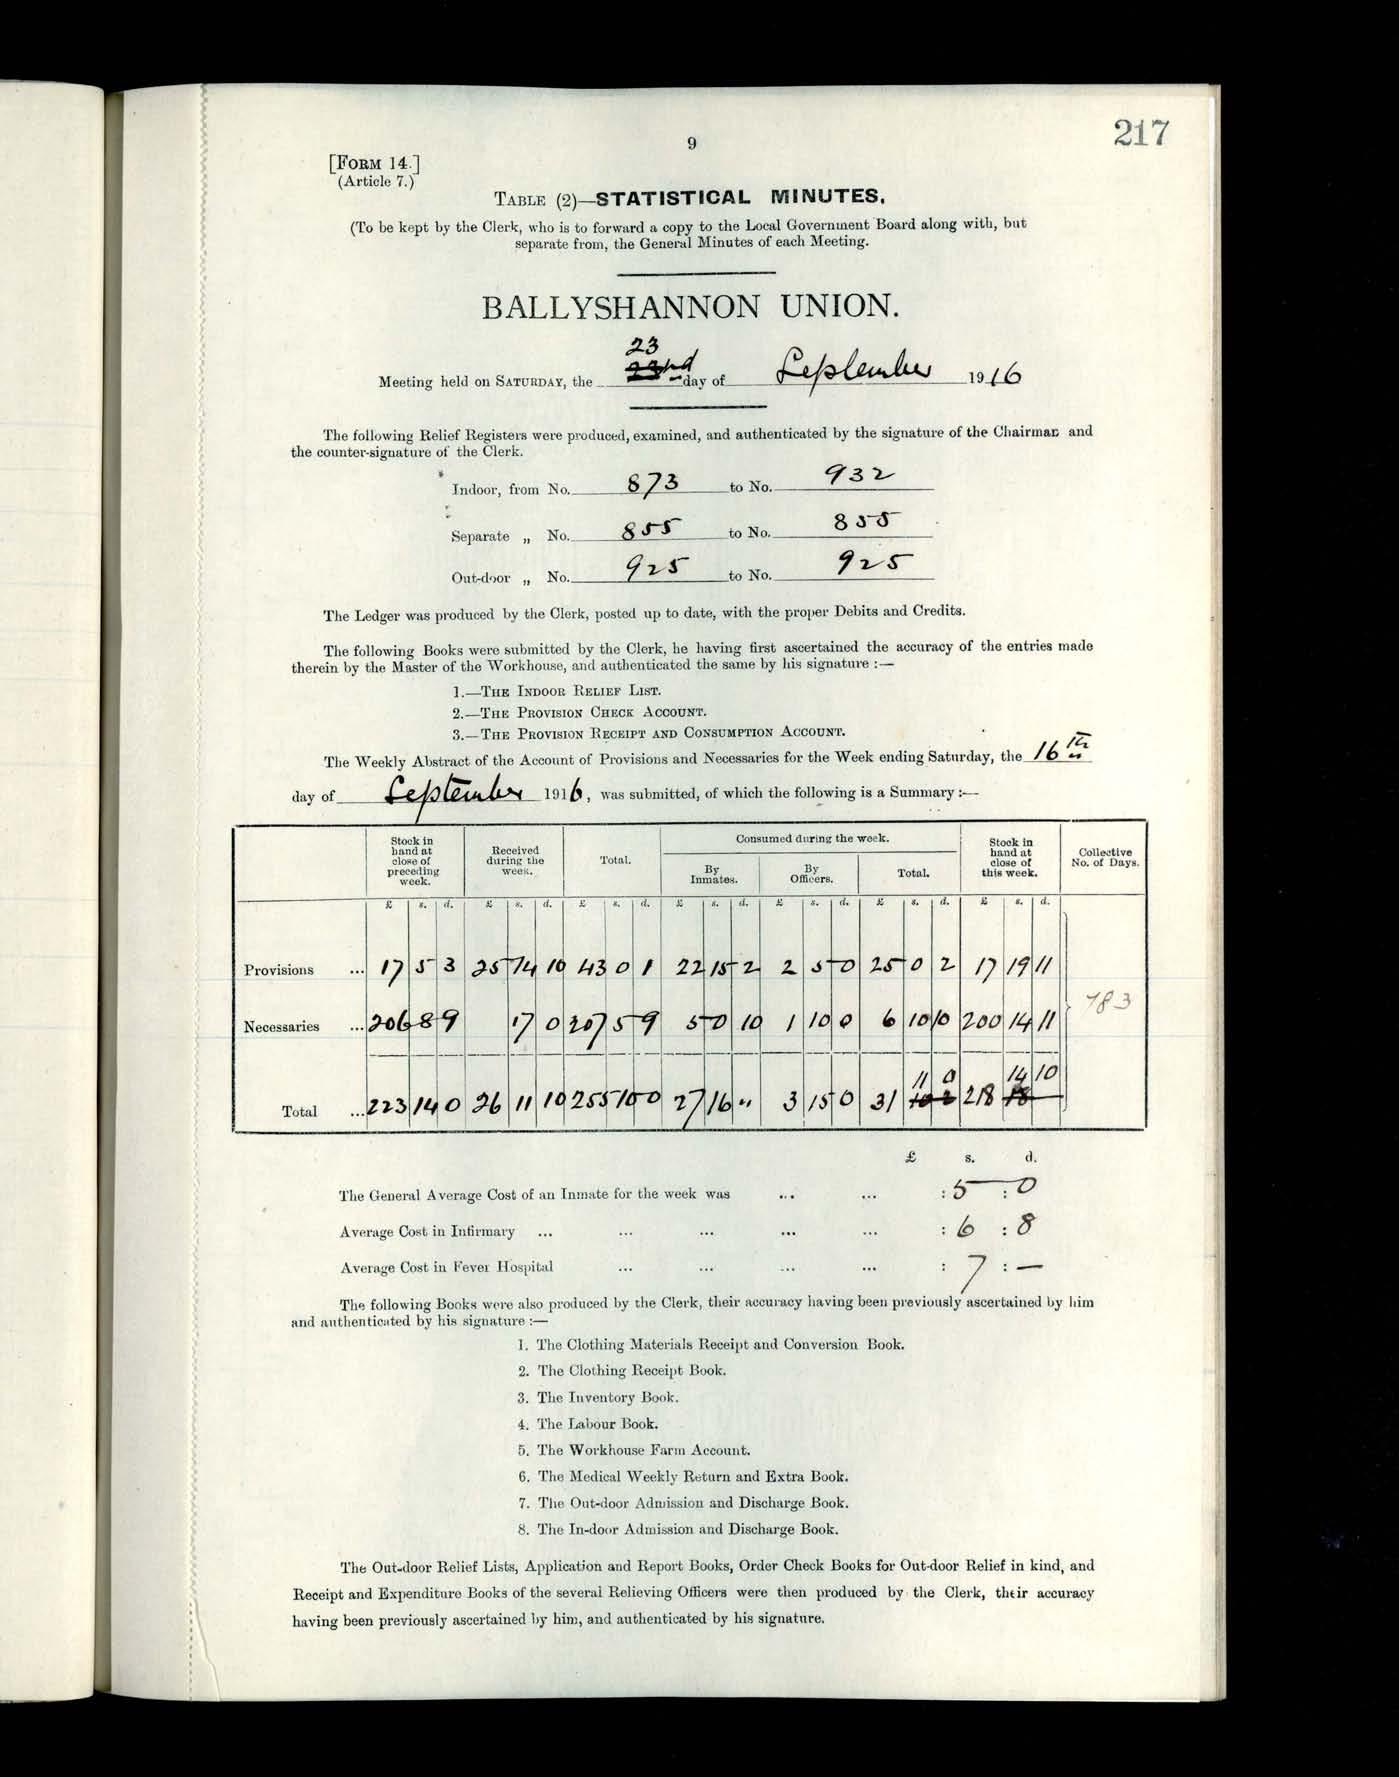 217
9
[FORM 14.]
(Article 7.)
TABLE (2)—STATISTICAL MINUTES.
(To be kept by the Clerk, who is to forward a copy to the Local Government Board along with, but
separate from, the General Minutes of each Meeting.
BALLYSHANNON UNION.
23
Meeting held on SATURDAY, the 23nd day of September 1916
The following Relief Registers were produced, examined, and authenticated by the signature of the Chairman and
the counter-signature of the Clerk.
Indoor, from No. 873 to No. 932
Separate „ No. 855 to No. 855
Out-door „ No. 925 to No. 925
The Ledger was produced by the Clerk, posted up to date, with the proper Debits and Credits.
The following Books were submitted by the Clerk, he having first ascertained the accuracy of the entries made
therein by the Master of the Workhouse, and authenticated the same by his signature :—
1.—THE INDOOR RELIEF LIST.
2.—THE PROVISION CHECK ACCOUNT.
3.—THE PROVISION RECEIPT AND CONSUMPTION ACCOUNT.
The Weekly Abstract of the Account of Provisions and Necessaries for the Week ending Saturday, the 16th
day of September 1916, was submitted, of which the following is a Summary :—
Stock in hand at close of preceding week. Received during the week. Total. Consumed during the week. Stock in hand at close of this week. Collective No. of Days.
By Inmates. By Officers. Total.
£ s. d. £ s. d. £ s. d. £ s. d. £ s. d. £ s. d. £ s. d.
Provisions ... 17 5 3 25 14 10 43 0 1 22 15 2 2 5 0 25 0 2 17 19 11
783
Necessaries ... 206 8 9 17 0 207 5 9 5 0 10 1 10 0 6 10 10 200 14 11
11 0 14 10
Total ... 223 14 0 26 11 10 255 10 0 27 16 " 3 15 0 31 10 2 218 18
£ s. d.
The General Average Cost of an Inmate for the week was ... ... : 5 : 0
Average Cost in Infirmary ... ... ... ... ... : 6 : 8
Average Cost in Fever Hospital ... ... ... ... : 7 : —
The following Books were also produced by the Clerk, their accuracy having been previously ascertained by him
and authenticated by his signature :—
1. The Clothing Materials Receipt and Conversion Book.
2. The Clothing Receipt Book.
3. The Inventory Book.
4. The Labour Book.
5. The Workhouse Farm Account.
6. The Medical Weekly Return and Extra Book.
7. The Out-door Admission and Discharge Book.
8. The In-door Admission and Discharge Book.
The Out-door Relief Lists, Application and Report Books, Order Check Books for Out-door Relief in kind, and
Receipt and Expenditure Books of the several Relieving Officers were then produced by the Clerk, their accuracy
having been previously ascertained by him, and authenticated by his signature.